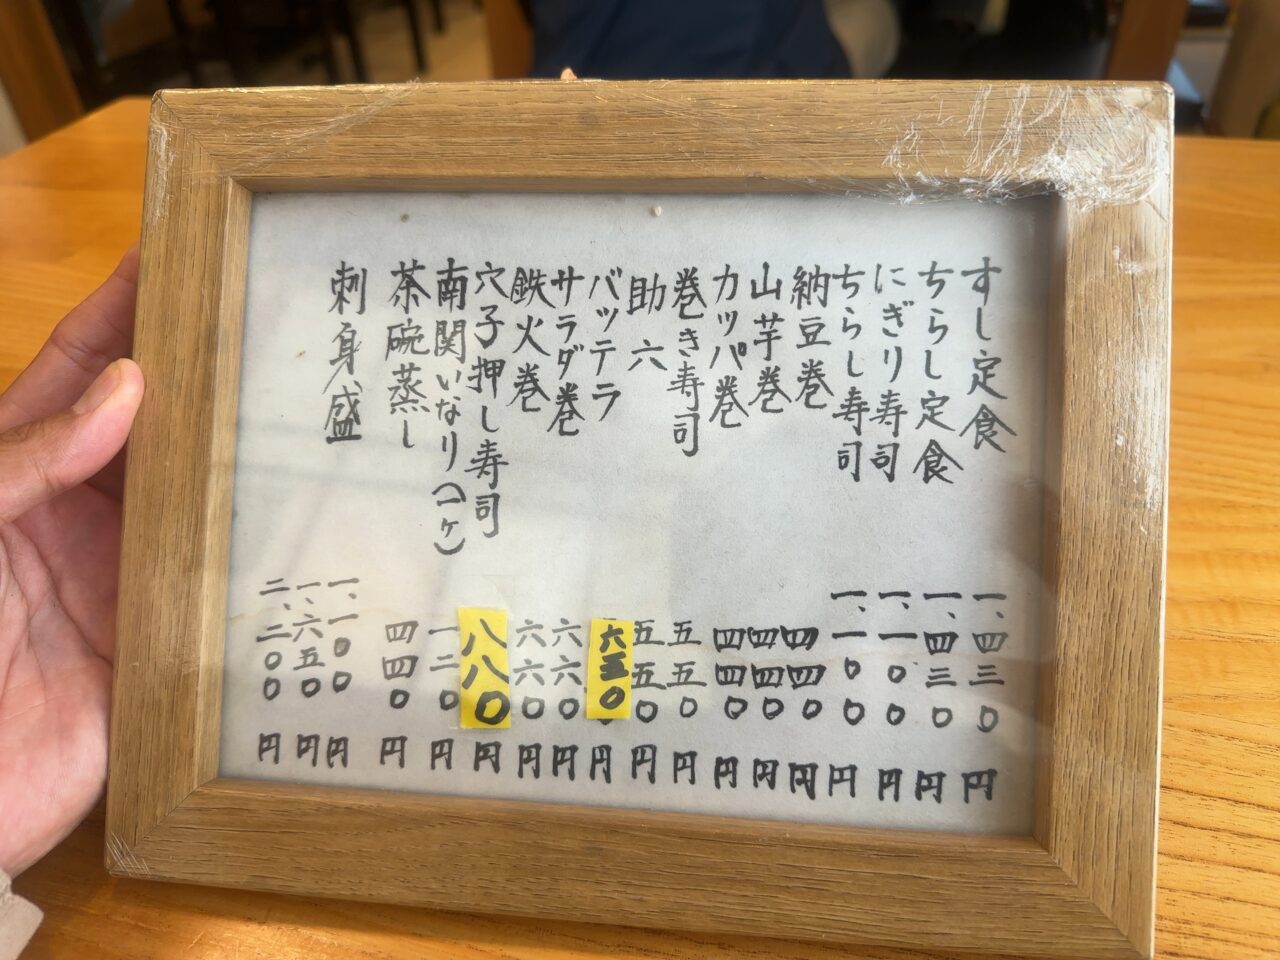 すし定食 一、四三〇円
ちらし定食 一、四三〇円
にぎり寿司 一、一〇〇円
ちらし寿司 一、一〇〇円
納豆巻 四四〇円
山芋巻 四四〇円
カッパ巻 四四〇円
巻き寿司 五五〇円
助六 五五〇円
バッテラ 六三〇円
サラダ巻 六六〇円
鉄火巻 六六〇円
穴子押し寿司 八八〇円
南関いなり(一ヶ) 一二〇円
茶碗蒸し 四四〇円
刺身盛 一、一〇〇円
一、六五〇円
二、二〇〇円